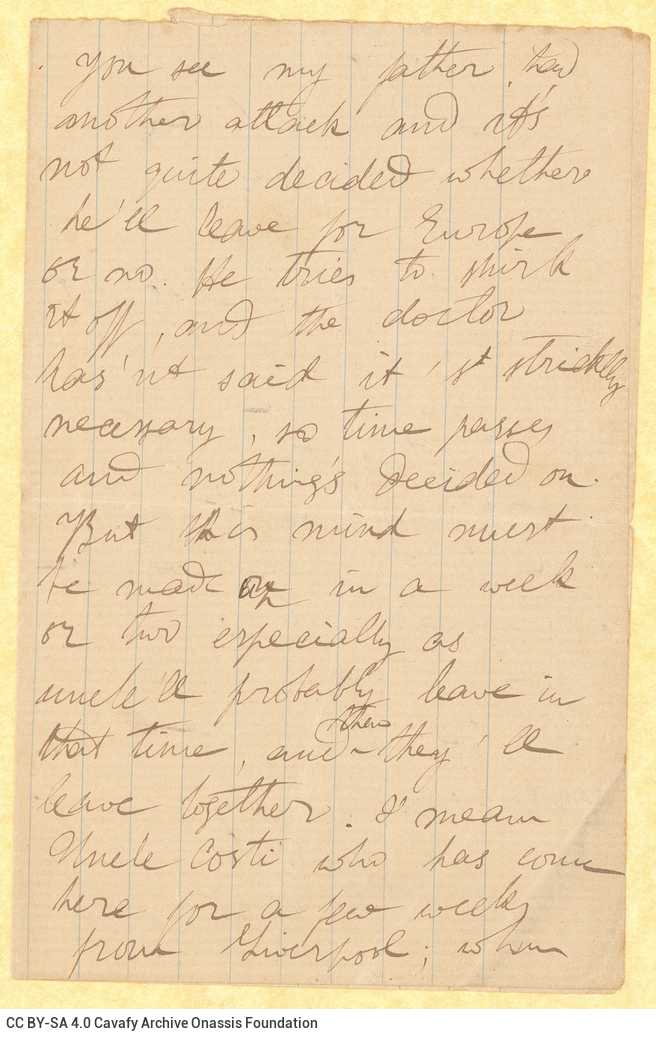 You see my father had
another attack and it's
not quite decided whether
he'll leave for Europe
or no. He tries to shirk
it off, and the doctor
has'nt said it 'st strickly
necessary, so time passes
and nothing's decided on.
But his mind must
be made up in a week
or two especially as
uncle'll probably leave in
that time, and then they'll
leave together. I mean
Uncle Costi who has come
here for a few weeks
from Liverpool; when
CC BY-SA 4.0 Cavafy Archive Onassis Foundation